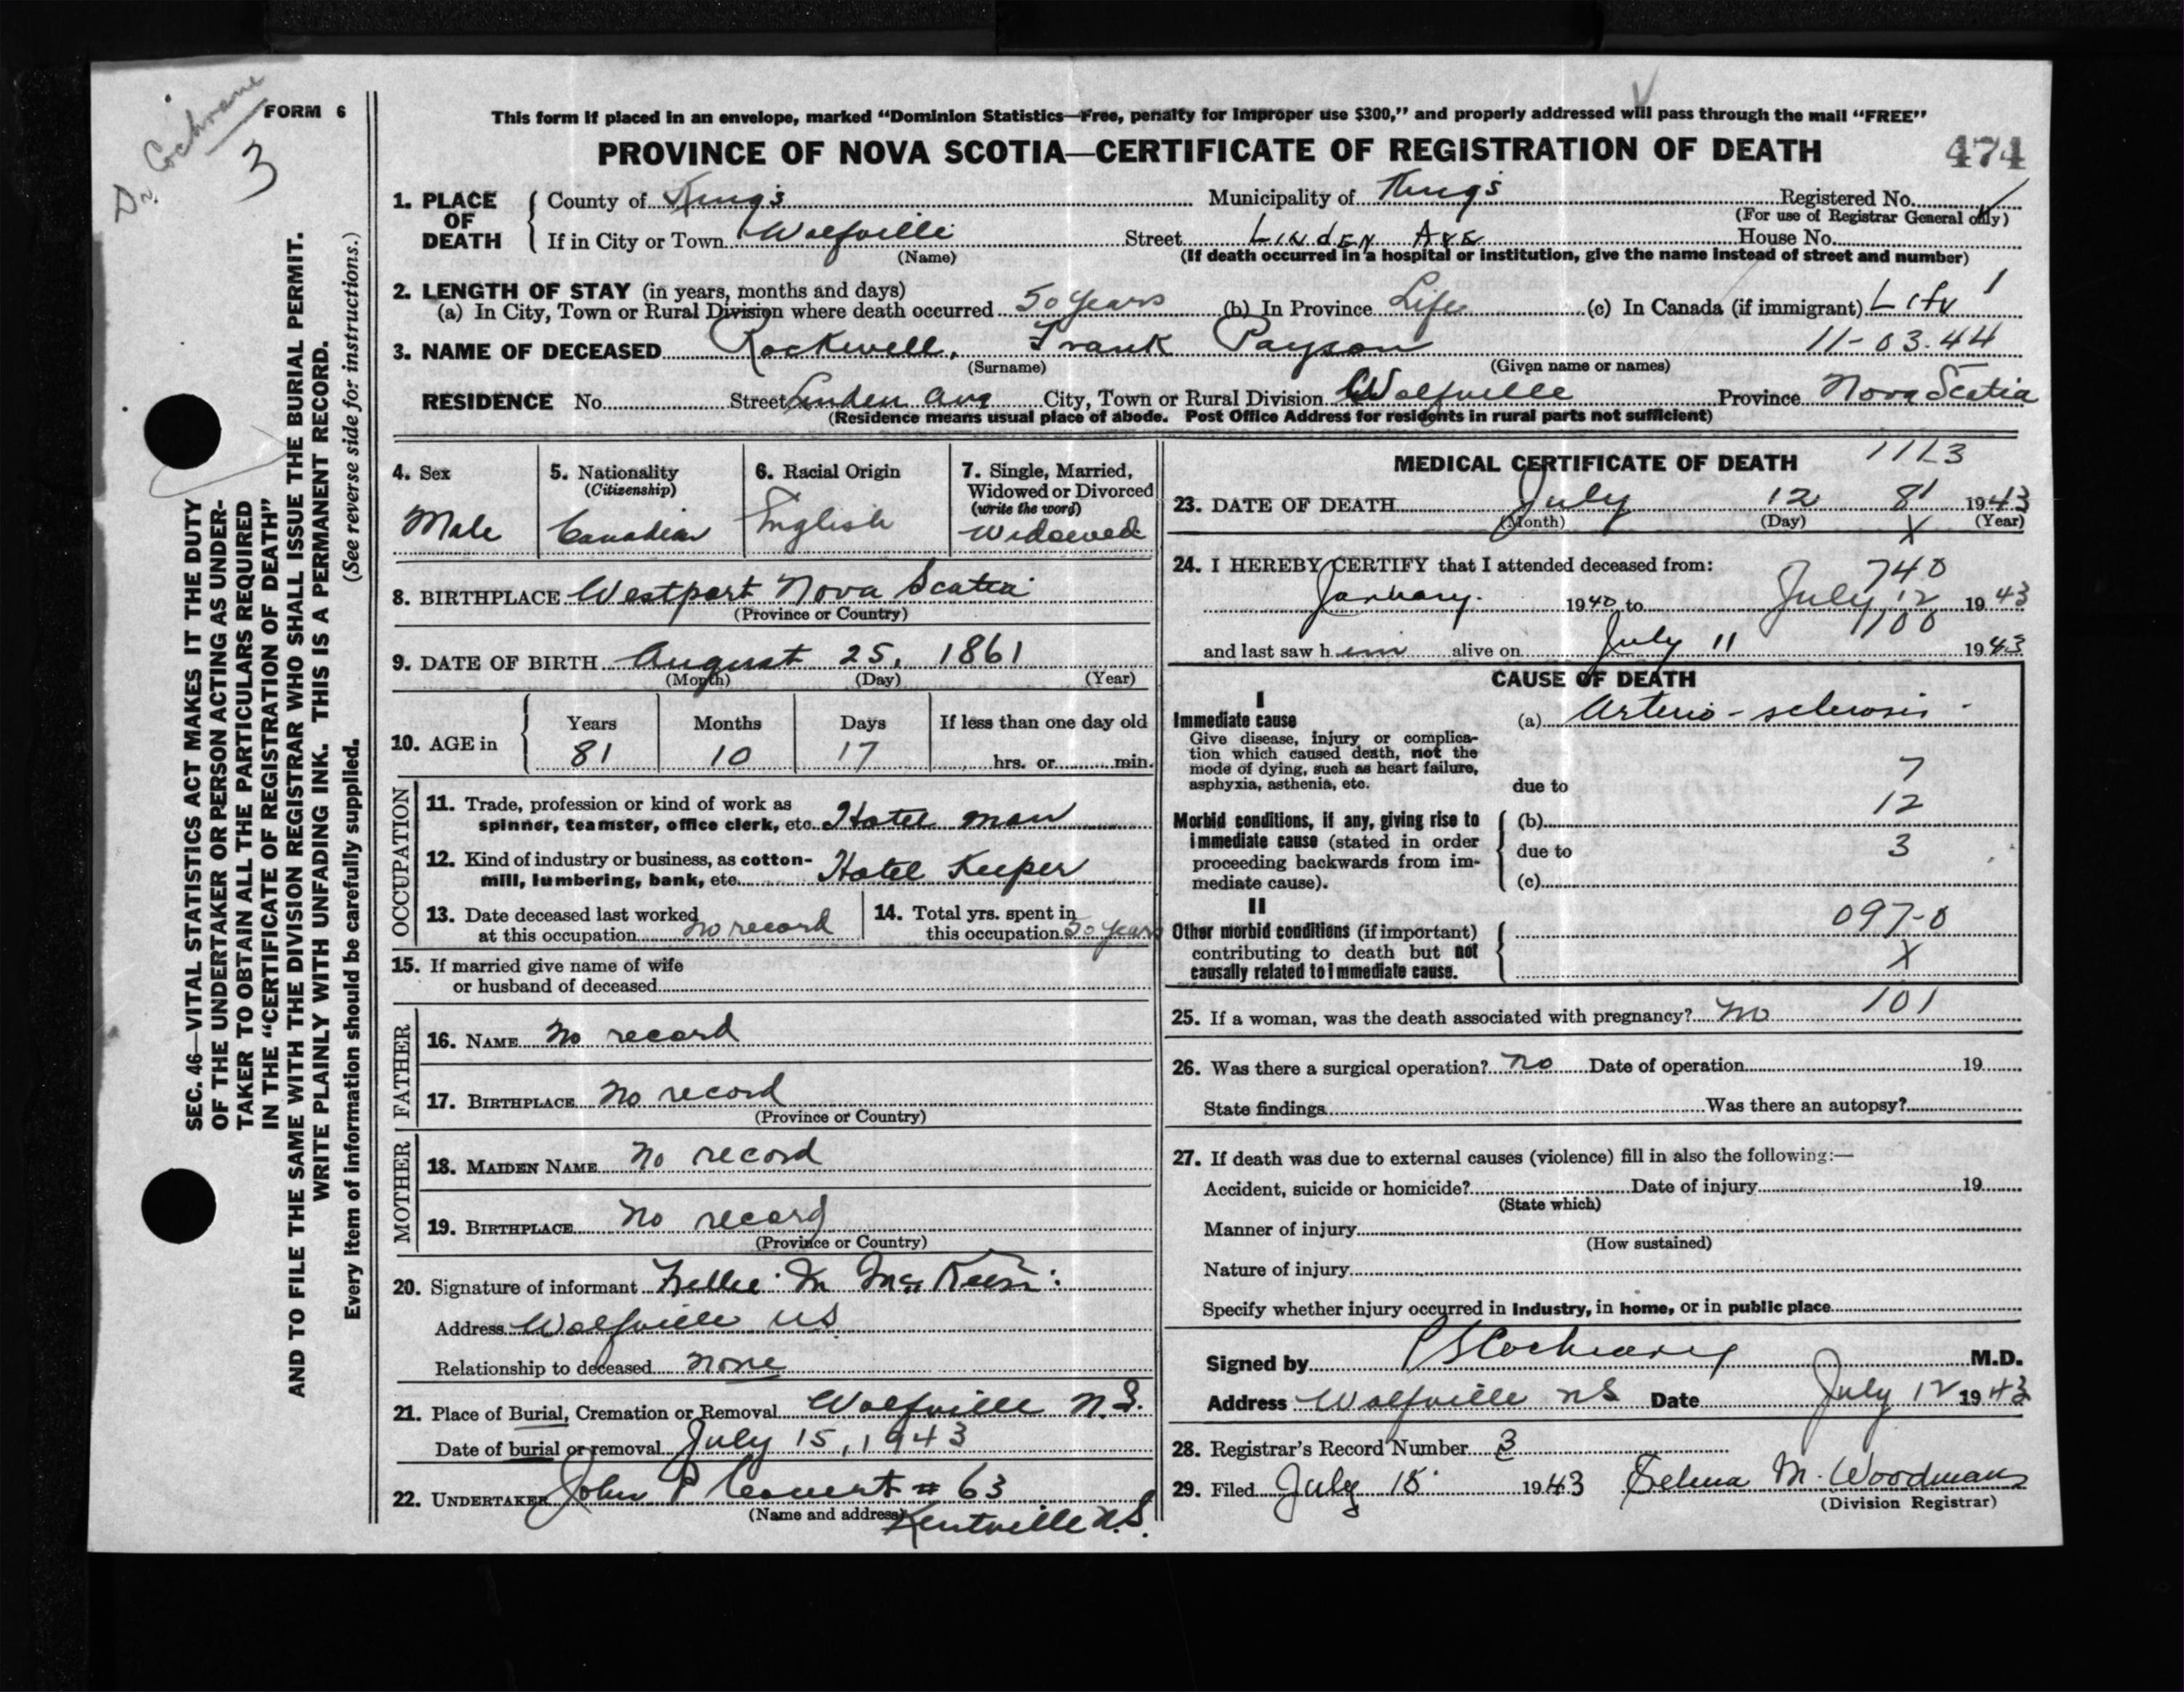 Dr. Cochrane
3
FORM 6
This form if placed in an envelope, marked "Dominion Statistics—Free, penalty for improper use $300," and properly addressed will pass through the mail "FREE"
PROVINCE OF NOVA SCOTIA—CERTIFICATE OF REGISTRATION OF DEATH 474
1. PLACE OF DEATH
County of Kings Municipality of Kings Registered No.
(For use of Registrar General only)
If in City or Town Wolfville Street Linden Ave House No.
(Name) (If death occurred in a hospital or institution, give the name instead of street and number)
2. LENGTH OF STAY (in years, months and days)
(a) In City, Town or Rural Division where death occurred 50 years (b) In Province Life (c) In Canada (if immigrant) Life 1
3. NAME OF DECEASED Rockwell, Frank Payson 11-03.44
(Surname) (Given name or names)
RESIDENCE No. Street Linden Ave City, Town or Rural Division Wolfville Province Nova Scotia
(Residence means usual place of abode. Post Office Address for residents in rural parts not sufficient)
4. Sex 5. Nationality 6. Racial Origin 7. Single, Married,
(Citizenship) Widowed or Divorced
(write the word)
Male Canadian English Widowed
8. BIRTHPLACE Westport Nova Scotia
(Province or Country)
9. DATE OF BIRTH August 25, 1861
(Month) (Day) (Year)
10. AGE in Years Months Days If less than one day old
81 10 17 hrs. or min.
OCCUPATION
11. Trade, profession or kind of work as
spinner, teamster, office clerk, etc. Hotel man
12. Kind of industry or business, as cotton-
mill, lumbering, bank, etc. Hotel Keeper
13. Date deceased last worked
at this occupation no record
14. Total yrs. spent in
this occupation 50 years
15. If married give name of wife
or husband of deceased
FATHER
16. NAME No record
17. BIRTHPLACE No record
(Province or Country)
MOTHER
18. MAIDEN NAME No record
19. BIRTHPLACE No record
(Province or Country)
20. Signature of informant Nellie M
Address Wolfville NS
Relationship to deceased none
21. Place of Burial, Cremation or Removal Wolfville N.S.
Date of burial or removal July 15, 1943
22. UNDERTAKER John P # 63
(Name and address) Kentville N.S.
MEDICAL CERTIFICATE OF DEATH 1113
23. DATE OF DEATH July 12 81 1943
(Month) (Day) X (Year)
24. I HEREBY CERTIFY that I attended deceased from:
740
January 1940 to July 12 1943
1100
and last saw h im alive on July 11 1943
CAUSE OF DEATH
I
Immediate cause (a) Arterio-sclerosis
Give disease, injury or complica-
tion which caused death, not the
mode of dying, such as heart failure,
asphyxia, asthenia, etc. due to 7
12
Morbid conditions, if any, giving rise to (b)
immediate cause (stated in order due to 3
proceeding backwards from im-
mediate cause). (c)
II
097-0
Other morbid conditions (if important)
contributing to death but not X
causally related to immediate cause.
25. If a woman, was the death associated with pregnancy? No 101
26. Was there a surgical operation? No Date of operation 19
State findings Was there an autopsy?
27. If death was due to external causes (violence) fill in also the following:—
Accident, suicide or homicide? Date of injury 19
(State which)
Manner of injury
(How sustained)
Nature of injury
Specify whether injury occurred in industry, in home, or in public place
Signed by Cochrane M.D.
Address Wolfville NS Date July 12 1943
28. Registrar's Record Number 3
29. Filed July 15 1943 Selma M. Woodman
(Division Registrar)
SEC. 46—VITAL STATISTICS ACT MAKES IT THE DUTY
OF THE UNDERTAKER OR PERSON ACTING AS UNDER-
TAKER TO OBTAIN ALL THE PARTICULARS REQUIRED
IN THE "CERTIFICATE OF REGISTRATION OF DEATH"
AND TO FILE THE SAME WITH THE DIVISION REGISTRAR WHO SHALL ISSUE THE BURIAL PERMIT.
WRITE PLAINLY WITH UNFADING INK. THIS IS A PERMANENT RECORD.
Every item of information should be carefully supplied. (See reverse side for instructions.)